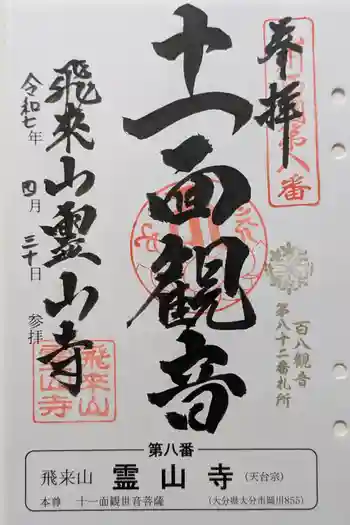 奉拝
第八番
百八観音
第八十二番札所
十一面観音
飛来山霊山寺
令和七年 四月 三十日 参拝
飛来山
霊山寺
第八番
飛来山 霊山寺 (天台宗)
本尊 十一面観世音菩薩 (大分県大分市岡川855)